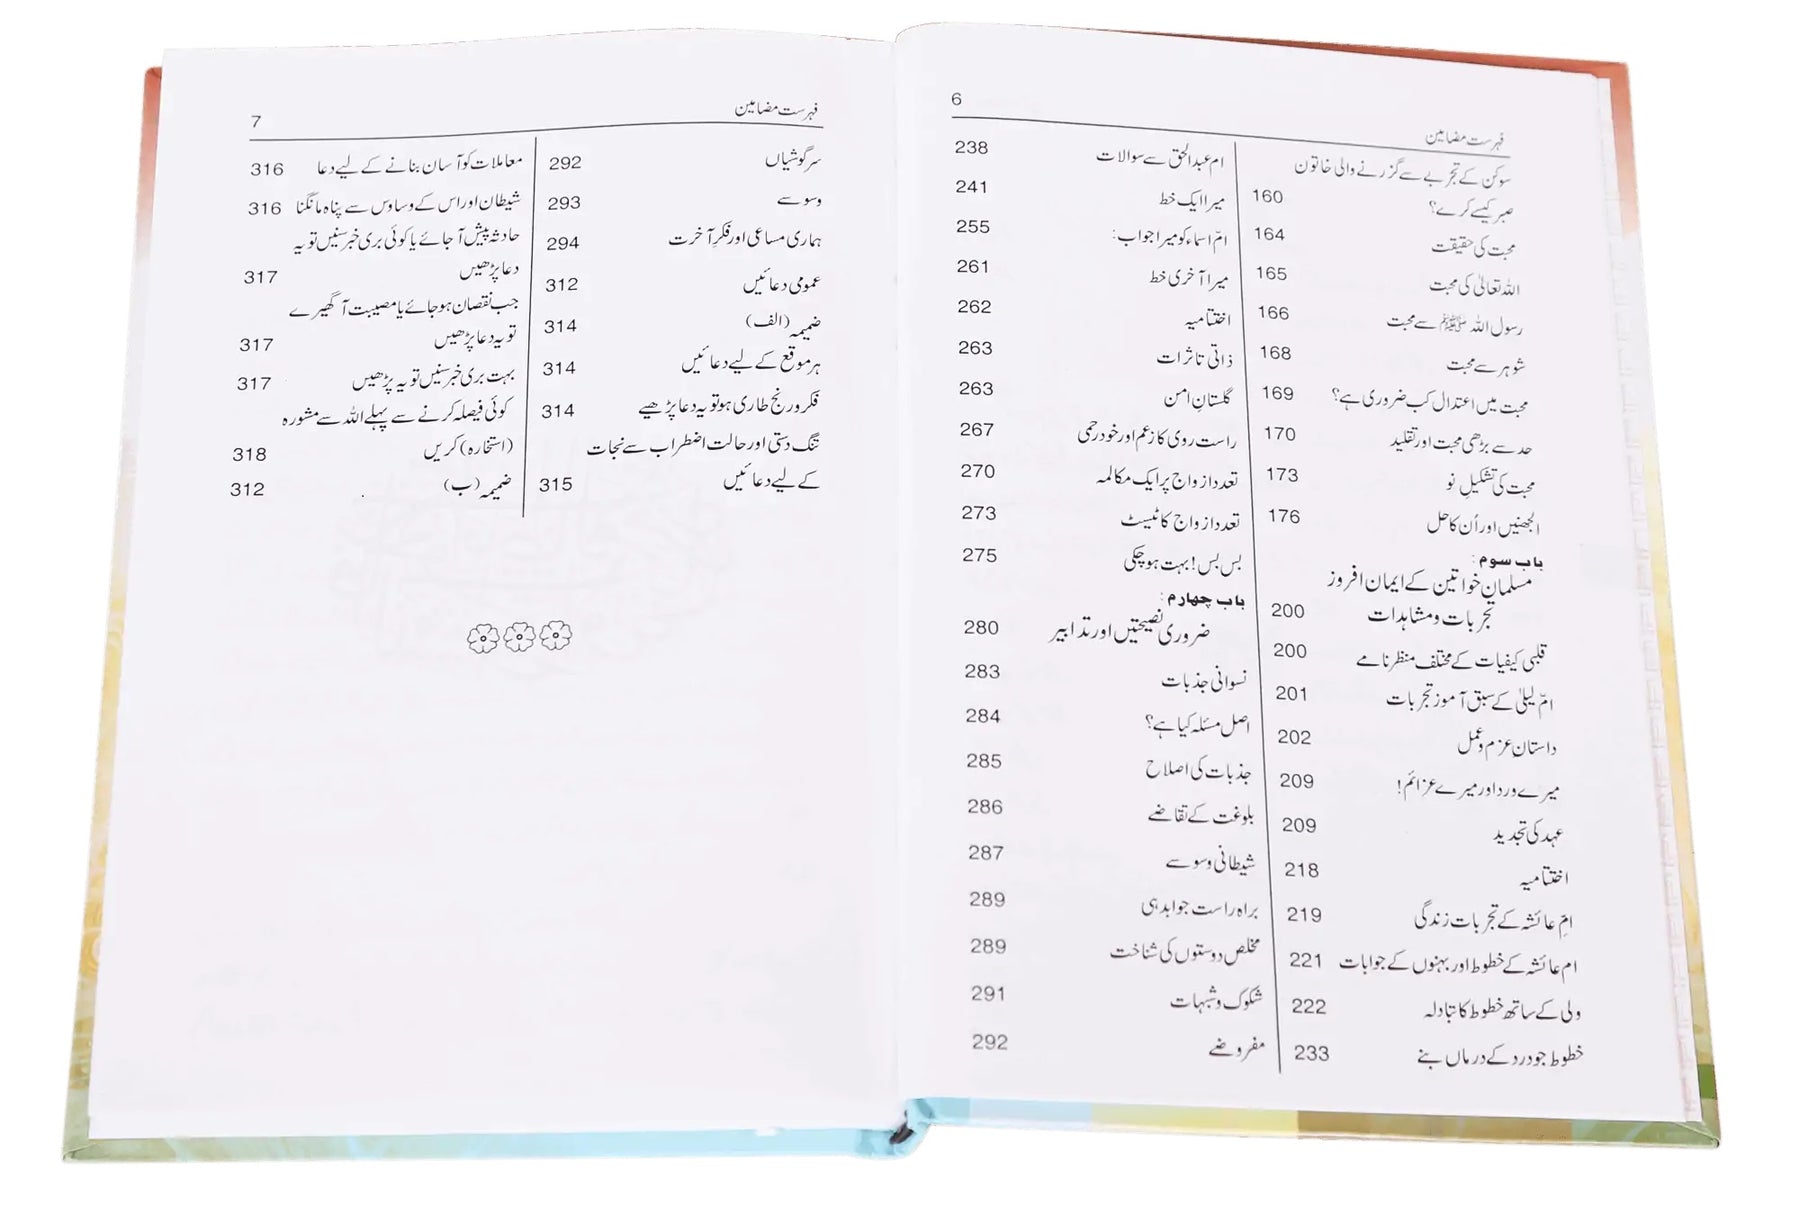 6
فہرست مضامین
سوکن کے تجربے سے گزرنے والی خاتون
صبر کیسے کرے؟ 160
محبت کی حقیقت 164
اللہ تعالیٰ کی محبت 165
رسول اللہ ﷺ سے محبت 166
شوہر سے محبت 168
محبت میں اعتدال کب ضروری ہے؟ 169
حد سے بڑھی محبت اور تقلید 170
محبت کی تشکیلِ نو 173
الجھنیں اور اُن کا حل 176
باب سوم:
مسلمان خواتین کے ایمان افروز
تجربات و مشاہدات 200
قلبی کیفیات کے مختلف منظرنامے 200
امّ لیلیٰ کے سبق آموز تجربات 201
داستانِ عزم و عمل 202
میرے ورد اور میرے عزائم! 209
عہد کی تجدید 209
اختتامیہ 218
امّ عائشہ کے تجربات زندگی 219
ام عائشہ کے خطوط اور بہنوں کے جوابات 221
ولی کے ساتھ خطوط کا تبادلہ 222
خطوط جو درد کے درماں بنے 233
ام عبدالحق سے سوالات 238
میرا ایک خط 241
امّ اسماء کو میرا جواب: 255
میرا آخری خط 261
اختتامیہ 262
ذاتی تاثرات 263
گلستانِ امن 263
راست روی کا زعم اور خود رحمی 267
تعدد ازواج پر ایک مکالمہ 270
تعدد ازواج کا ٹیسٹ 273
بس بس! بہت ہو چکی 275
باب چہارم:
ضروری نصیحتیں اور تدابیر 280
نسوانی جذبات 283
اصل مسئلہ کیا ہے؟ 284
جذبات کی اصلاح 285
بلوغت کے تقاضے 286
شیطانی وسوسے 287
براہ راست جوابدہی 289
مخلص دوستوں کی شناخت 289
شکوک و شبہات 291
مفروضے 292
فہرست مضامین
7
سرگوشیاں 292
وسوسے 293
ہماری مساعی اور فکرِ آخرت 294
عمومی دعائیں 312
ضمیمہ (الف) 314
ہر موقع کے لیے دعائیں 314
فکر و رنج طاری ہو تو یہ دعا پڑھیے 314
تنگ دستی اور حالت اضطراب سے نجات
کے لیے دعائیں 315
معاملات کو آسان بنانے کے لیے دعا 316
شیطان اور اس کے وساوس سے پناہ مانگنا 316
حادثہ پیش آ جائے یا کوئی بری خبر سنیں تو یہ
دعا پڑھیں 317
جب نقصان ہو جائے یا مصیبت آ گھیرے
تو یہ دعا پڑھیں 317
بہت بری خبر سنیں تو یہ پڑھیں 317
کوئی فیصلہ کرنے سے پہلے اللہ سے مشورہ
(استخارہ) کریں 318
ضمیمہ (ب) 312